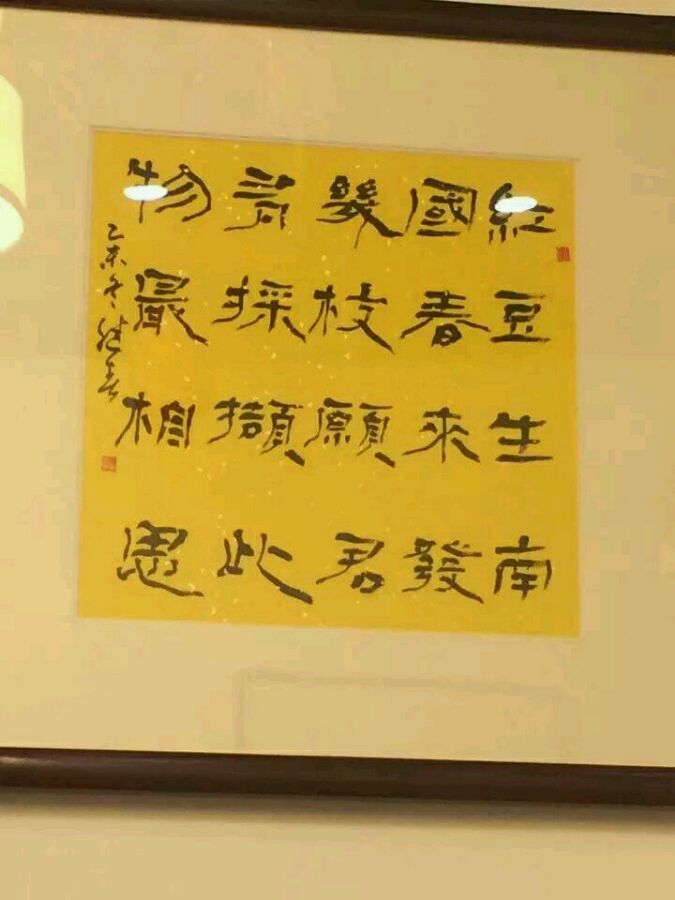 紅豆生南
國春來發
幾枝願君
多採擷此
物最相思
乙未冬